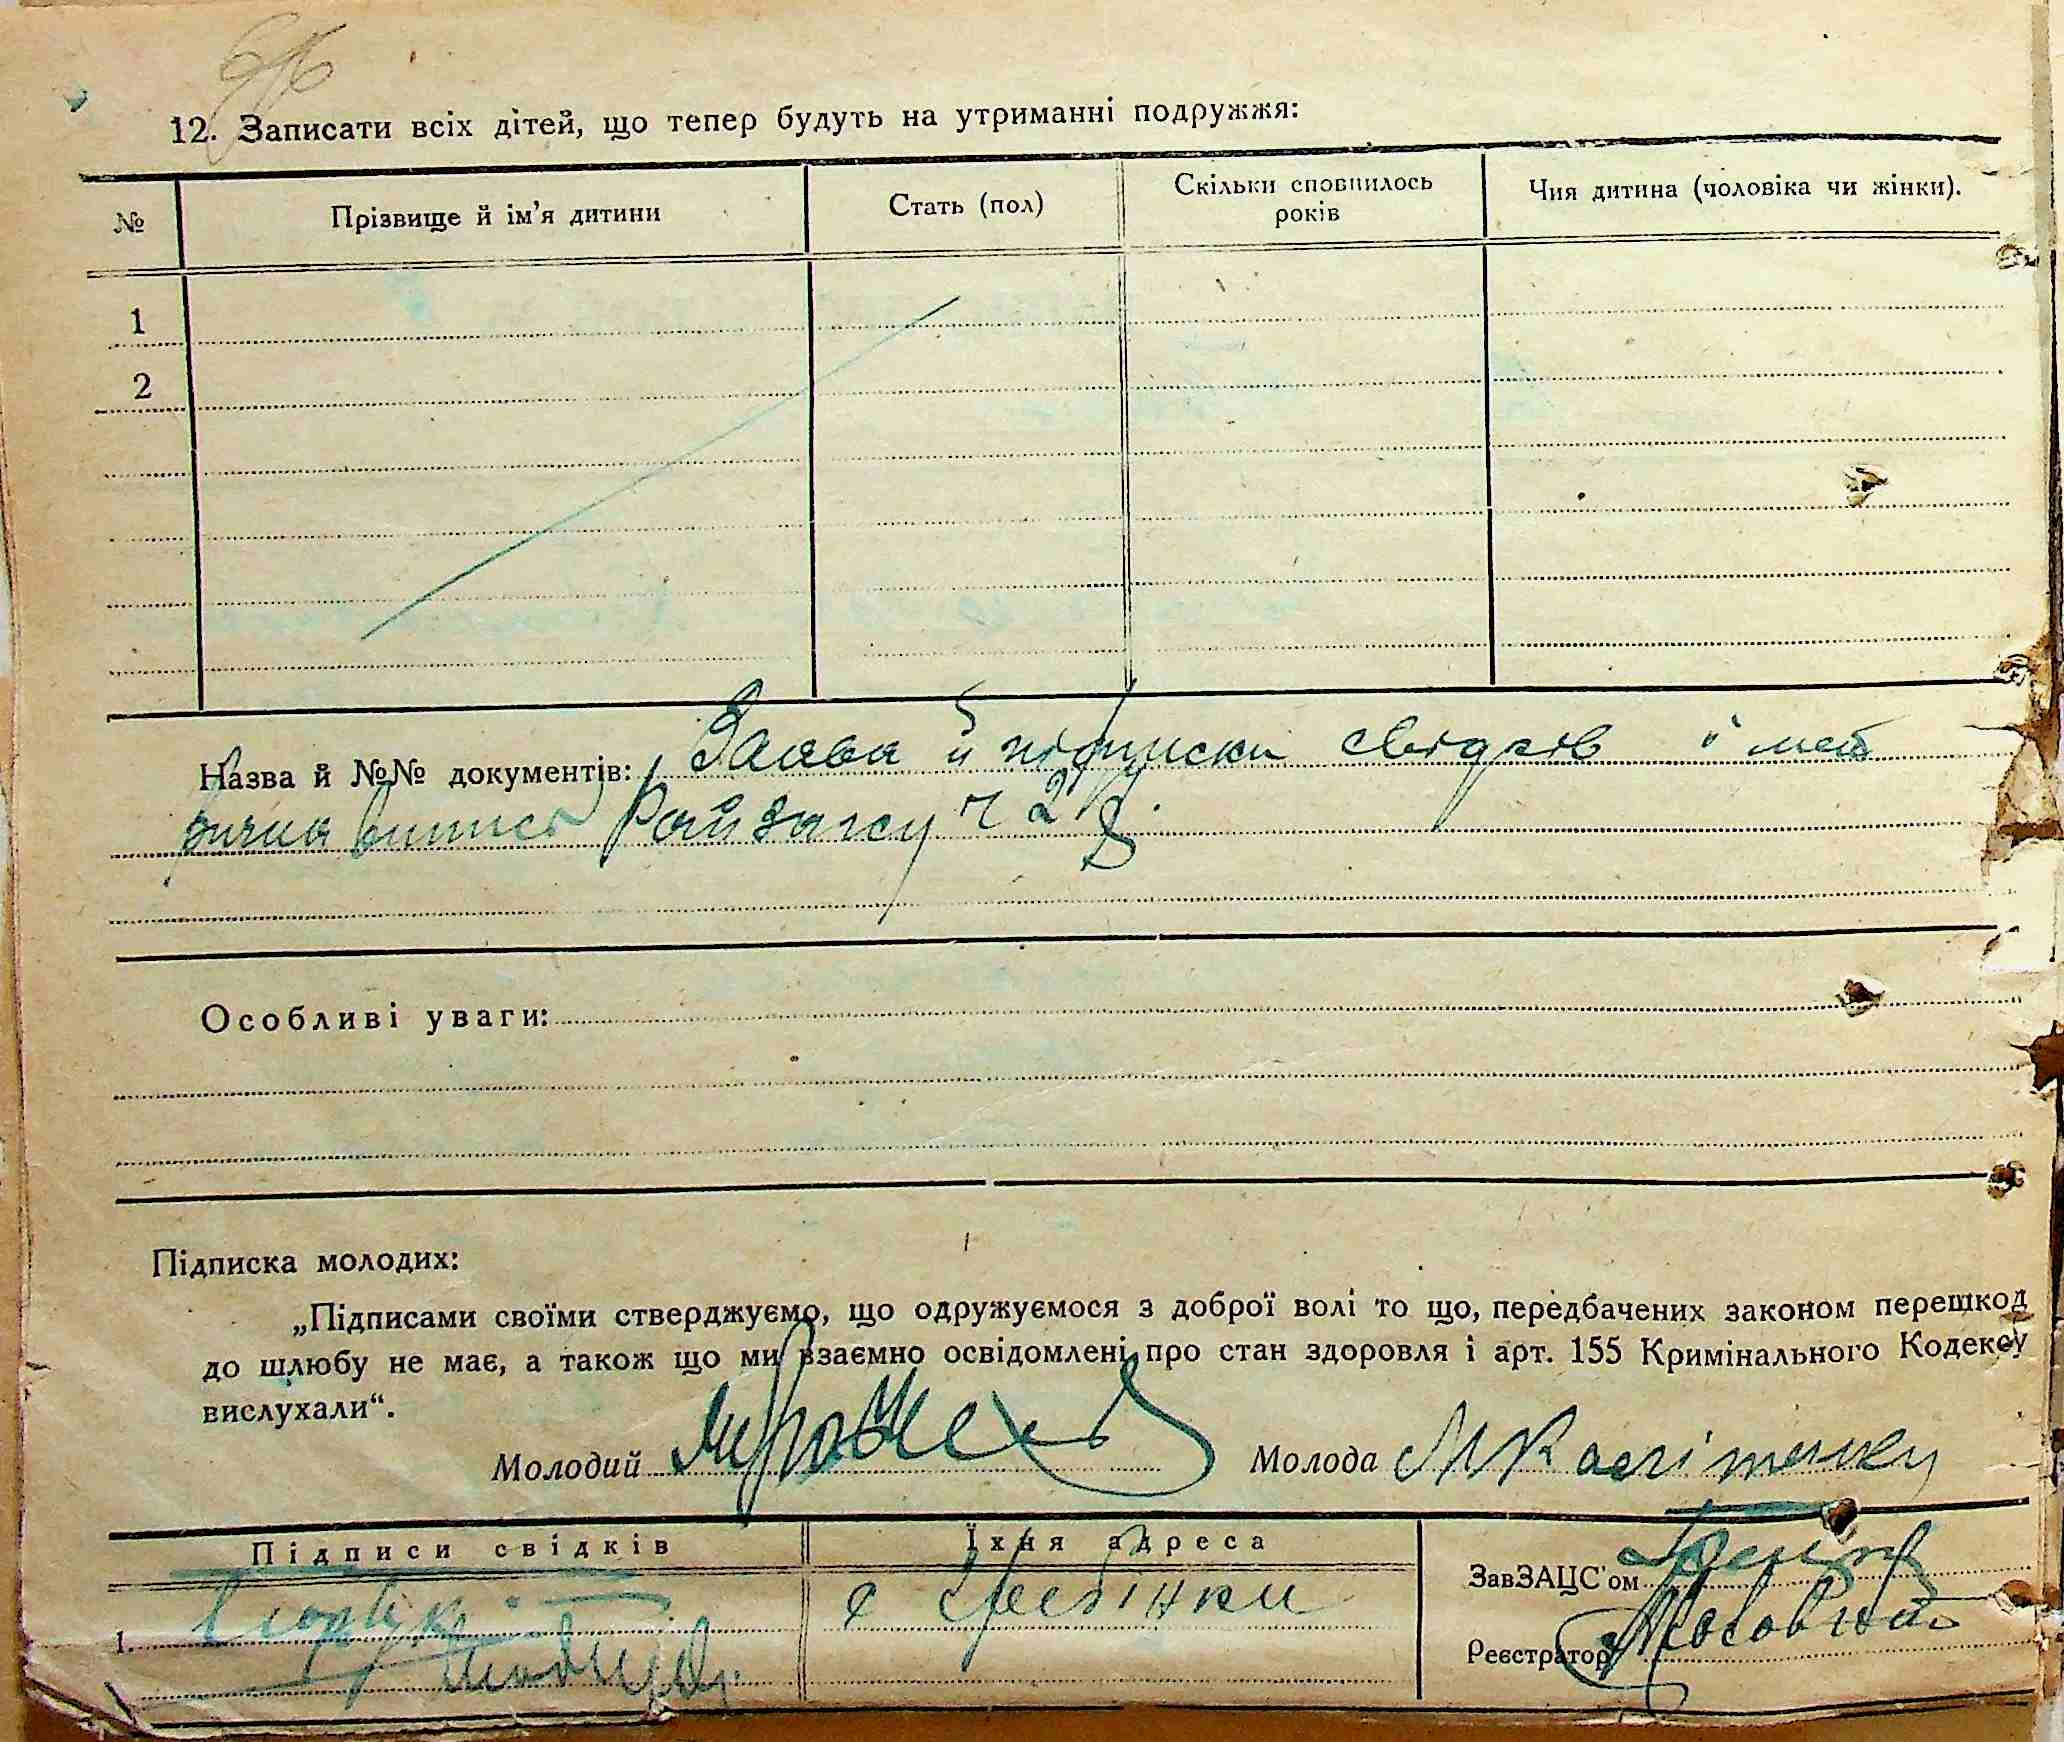 12. Записати всіх дітей, що тепер будуть на утриманні подружжя:
№ Прізвище й ім'я дитини Стать (пол) Скільки сповнилось років Чия дитина (чоловіка чи жінки).
1
2
Назва й №№ документів: Заява й підписки свідків і мет
рична випись Райзагсу ч 28.
Особливі уваги:
Підписка молодих:
„Підписами своїми стверджуємо, що одружуємося з доброї волі то що, передбачених законом перешкод
до шлюбу не має, а також що ми взаємно освідомлені про стан здоровля і арт. 155 Кримінального Кодексу
вислухали“.
Молодий Молода
Підписи свідків Їхня адреса
ЗавЗАЦС'ом
1. с Гребінки
Реєстратор